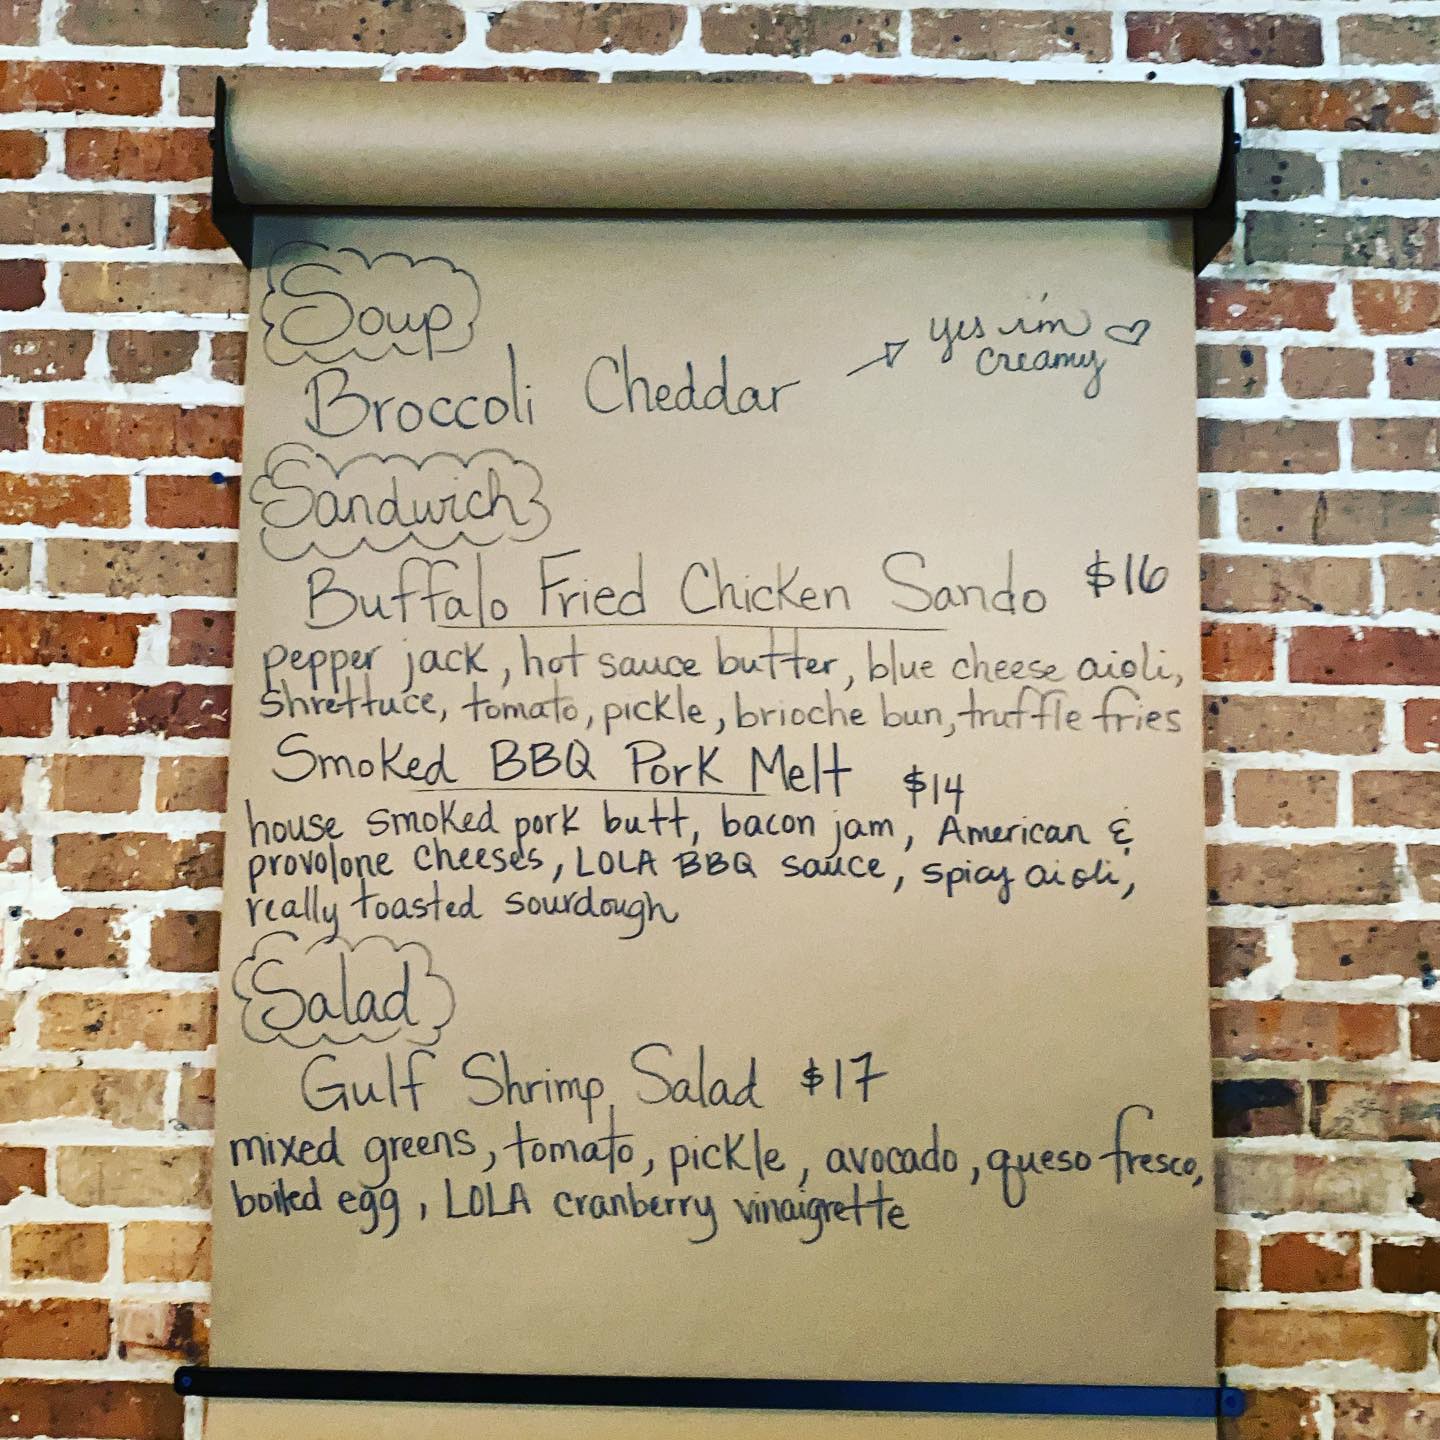 Soup
yes i'm
creamy
Broccoli Cheddar
Sandwich
Buffalo Fried Chicken Sando $16
pepper jack, hot sauce butter, blue cheese aioli,
shrettuce, tomato, pickle, brioche bun, truffle fries
Smoked BBQ Pork Melt $14
house smoked pork butt, bacon jam, American &
provolone cheeses, LOLA BBQ sauce, spicy aioli,
really toasted sourdough
Salad
Gulf Shrimp Salad $17
mixed greens, tomato, pickle, avocado, queso fresco,
boiled egg, LOLA cranberry vinaigrette